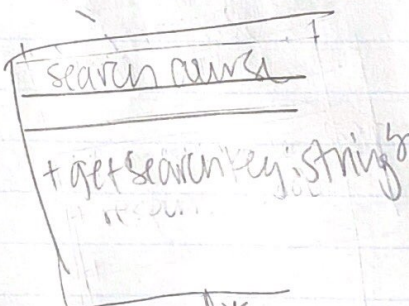 search course
+getsearchkey:string